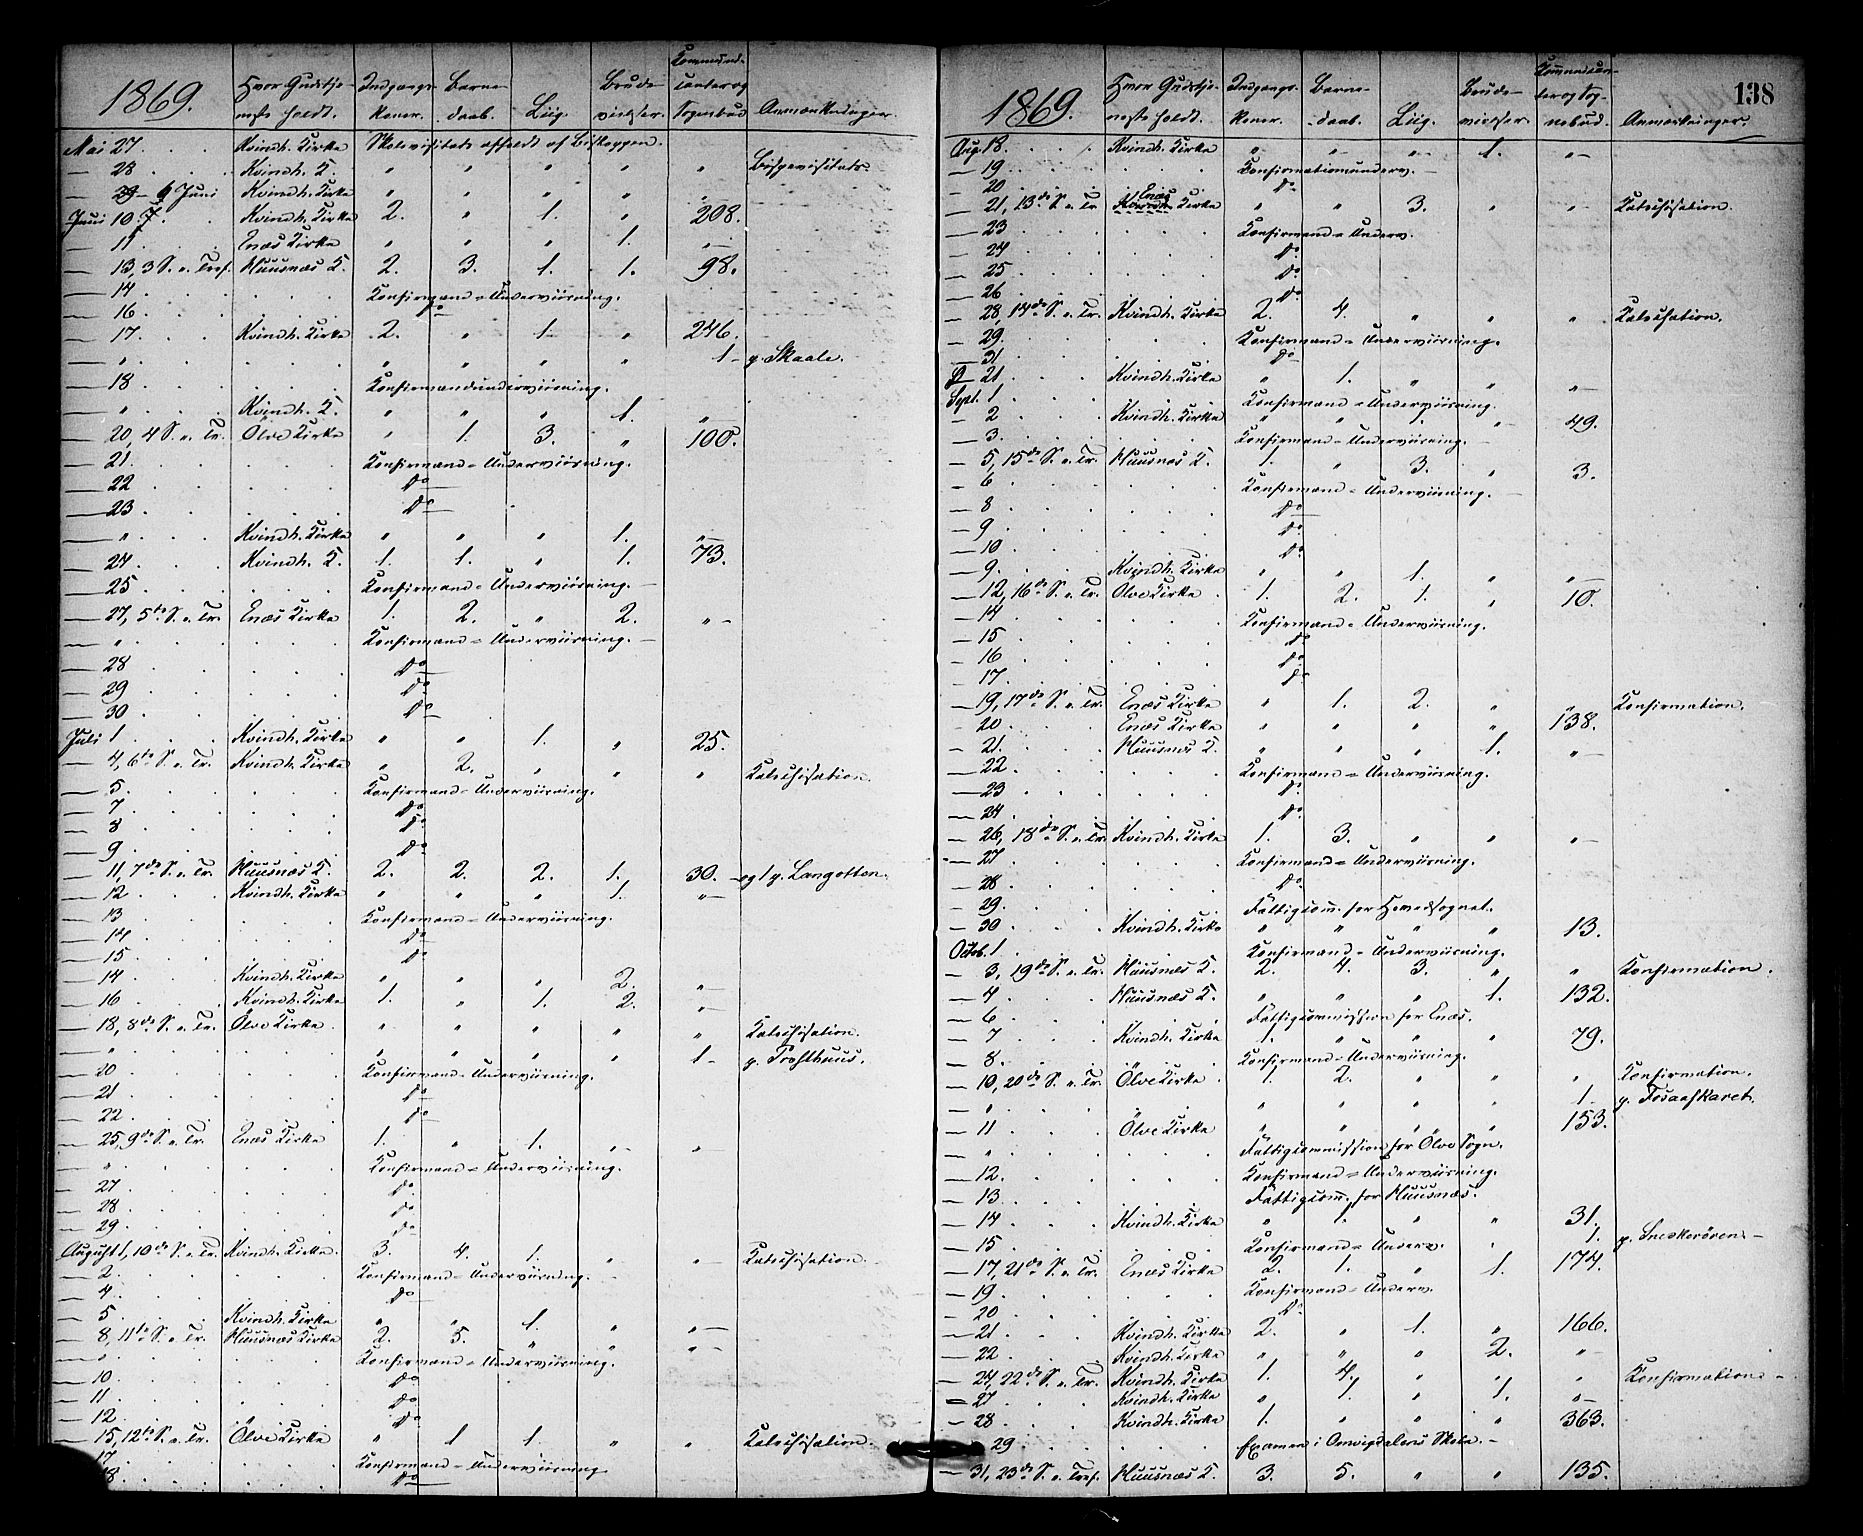 1869. Hvor Gudstje- Indgangs- Barne- Liig. Brude- Kommuni-
neste holdt. koner. daab. vielser. canter og Sognebud Anmærkninger.
Mai 27 Kvindh. Kirke Skolevisitats afholdt af Biskoppen.
— 28 Kvindh. K. " " " " " Bispevisitats.
— 29 - 6 Juni Kvindh. Kirke " " " "
Juni 10 Kvindh. Kirke 2. " 1. " 208.
— 11 Enæs Kirke " " " 1. "
— 13, 3 S. e. Tref. Huusnæs K. 2. 3. 1. 1. 98.
— 14 Konfirmand-Underviisning.
— 16 Do
— 17 Kvindh. Kirke 2. " 1. " 246.
— " " " " " 1 - p. Skaale.
— 18 Konfirmandunderviisning.
— " Kvindh. K. " " " 1. "
— 20, 4 S. e. Tr. Ölve Kirke " 1. 3. " 100.
— 21. Konfirmand-Underviisning.
— 22 Do
— 23 Do
— " Kvindh. Kirke " " " 1. "
— 24 Kvindh. K. 1. 1. " 1. 73.
— 25 Konfirmand-Underviisning.
— 27, 5te S. e. Tr. Enæs Kirke 1. 2. " 2. "
— " Konfirmand-Underviisning.
— 28 Do
— 29 Do
— 30 Do
Juli 1 Kvindh. Kirke " " 1. " 25.
— 4, 6te S. e. Tr. Kvindh. Kirke " 2. " " " Katechisation.
— 5. Konfirmand-Underviisning.
— 7 Do
— 8 Do
— 9 Do
— 11, 7de S. e. Tr. Huusnæs K. 2. 2. 2. 1. 30. - og 1 p.
— 12 Kvindh. Kirke " " " 1. "
— 13 Konfirmand-Underviisning.
— 14 Do
— 15 Do
— 14 Kvindh. Kirke " " " 2. "
— 16 Kvindh. Kirke 1. " 1. 2. "
— 18, 8de S. e. Tr. Ölve Kirke " " " " " Katechisation.
— " " " " " 1 - p.
— 20 Konfirmand-Underviisning.
— 21 Do
— 22 Do
— 25, 9de S. e. Tr. Enæs Kirke 1. " 1. " "
— " Konfirmand-Underviisning.
— 27 Do
— 28 Do
— 29 Do
August 1, 10de S. e. Tr. Kvindh. Kirke. 3. 4. 1. " " Katechisation.
— 2. Konfirmand-Underviisning.
— 4. Do
— 5 Kvindh. Kirke " " 1. " "
— 8, 11te S. e. Tr. Huusnæs Kirke 2. 5. " " "
— " Konfirmand-Underviisning.
— 10 Do
— 11 Do
— 12 Do
— 15, 12te S. e. Tr. Ölve Kirke " 1 1. " " Katechisation.
17 Konfirmand-Underviisning
18. Do
138
1869. Hvor Gudstje- Indgangs- Barne- Liig. Brude- Kommunikan-
neste holdt. koner. daab. vielser. ter og Sog-nebud. Anmærkninger.
Aug. 18. Kvindh. Kirke " " " 1. "
— 19 Konfirmationsunderv.
— 20 Do
— 21, 13de S. e. Tr. Enæs Kirke " " 3. " " Katechisation.
— 23 Konfirmand-Underv.
— 24 Do
— 25 Do
— 26 Do
— 28, 14de S. e. Tr. Kvindh. Kirke 2. 4. " " " Katechisation.
— 29. Konfirmand-Underviisning.
— 31 Do
— 21 Kvindh. Kirke " 1. " " "
Sept. 1 Konfirmand-Underviisning.
— 2 Kvindh. Kirke " " 1. " 49.
— 3. Konfirmand-Underviisning.
— 5, 15de S. e. Tr. Huusnæs K. 1. " 3. " 3.
— 6 Konfirmand-Underviisning.
— 8 Do
— 9 Do
— 10 Do
— 9. Kvindh. Kirke " " 1. " "
— 12, 16de S. e. Tr. Ölve Kirke 1. 2. 1. " 10.
— 14 Konfirmand-Underviisning.
— 15 Do
— 16 Do
— 17 Do
— 19, 17de S. e. Tr. Enæs Kirke " 1. 2. " " Konfirmation.
— 20. Enæs Kirke " " " " 138.
— 21. Huusnæs K. " " " 1. "
— 22 Konfirmand-Underviisning.
— 23 Do
— 24 Do
— 26, 18de S. e. Tr. Kvindh. Kirke 1. 3. " " "
— 27 Konfirmand-Underviisning.
— 28 Do
— 29. Fattigcom. for Hovedsognet.
— 30 Kvindh. Kirke " " " " 13.
Octob. 1 Konfirmand-Underviisning.
— 3, 19de S. e. Tr. Huusnæs K. 2. 4. 3. " " Konfirmation.
— 4 Huusnæs K. " " " 1. 132.
— 6 Fattigcommission for Enæs.
— 7 Kvindh. Kirke 1. " " " 79.
— 8. Konfirmand-Underviisning.
— 10, 20de S. e. Tr. Ölve Kirke 1. 2. " " " Konfirmation.
— " " " " " 1. p.
— 11 Ölve Kirke " " " " 153.
— " Fattigcommission for Ölve Sogn.
— 12. Konfirmand-Underviisning.
— 13 Fattigcom. for Huusnæs.
— 14 Kvindh. Kirke " 1. " " 31.
— 15. Konfirmand-Underv. 1. p.
— 17, 21de S. e. Tr. Enæs Kirke 2. 1. " 1. 174.
— 19 Konfirmand-Underv.
— 20 Do
— 21 Kvindh. Kirke 2. " 1. " 166.
— 22 Kvindh. Kirke " " " 2. "
— 24, 22de S. e. Tr. Kvindh. Kirke 1. 4. " " " Konfirmation
— 27 Kvindh. Kirke " 1. " 1. "
— 28 Kvindh. Kirke 1. " " " 363.
— 29 Examen i Omvigdalens Skole.
— 31, 23de S. e. Tref. Huusnæs K. 3. 5. " " 135.